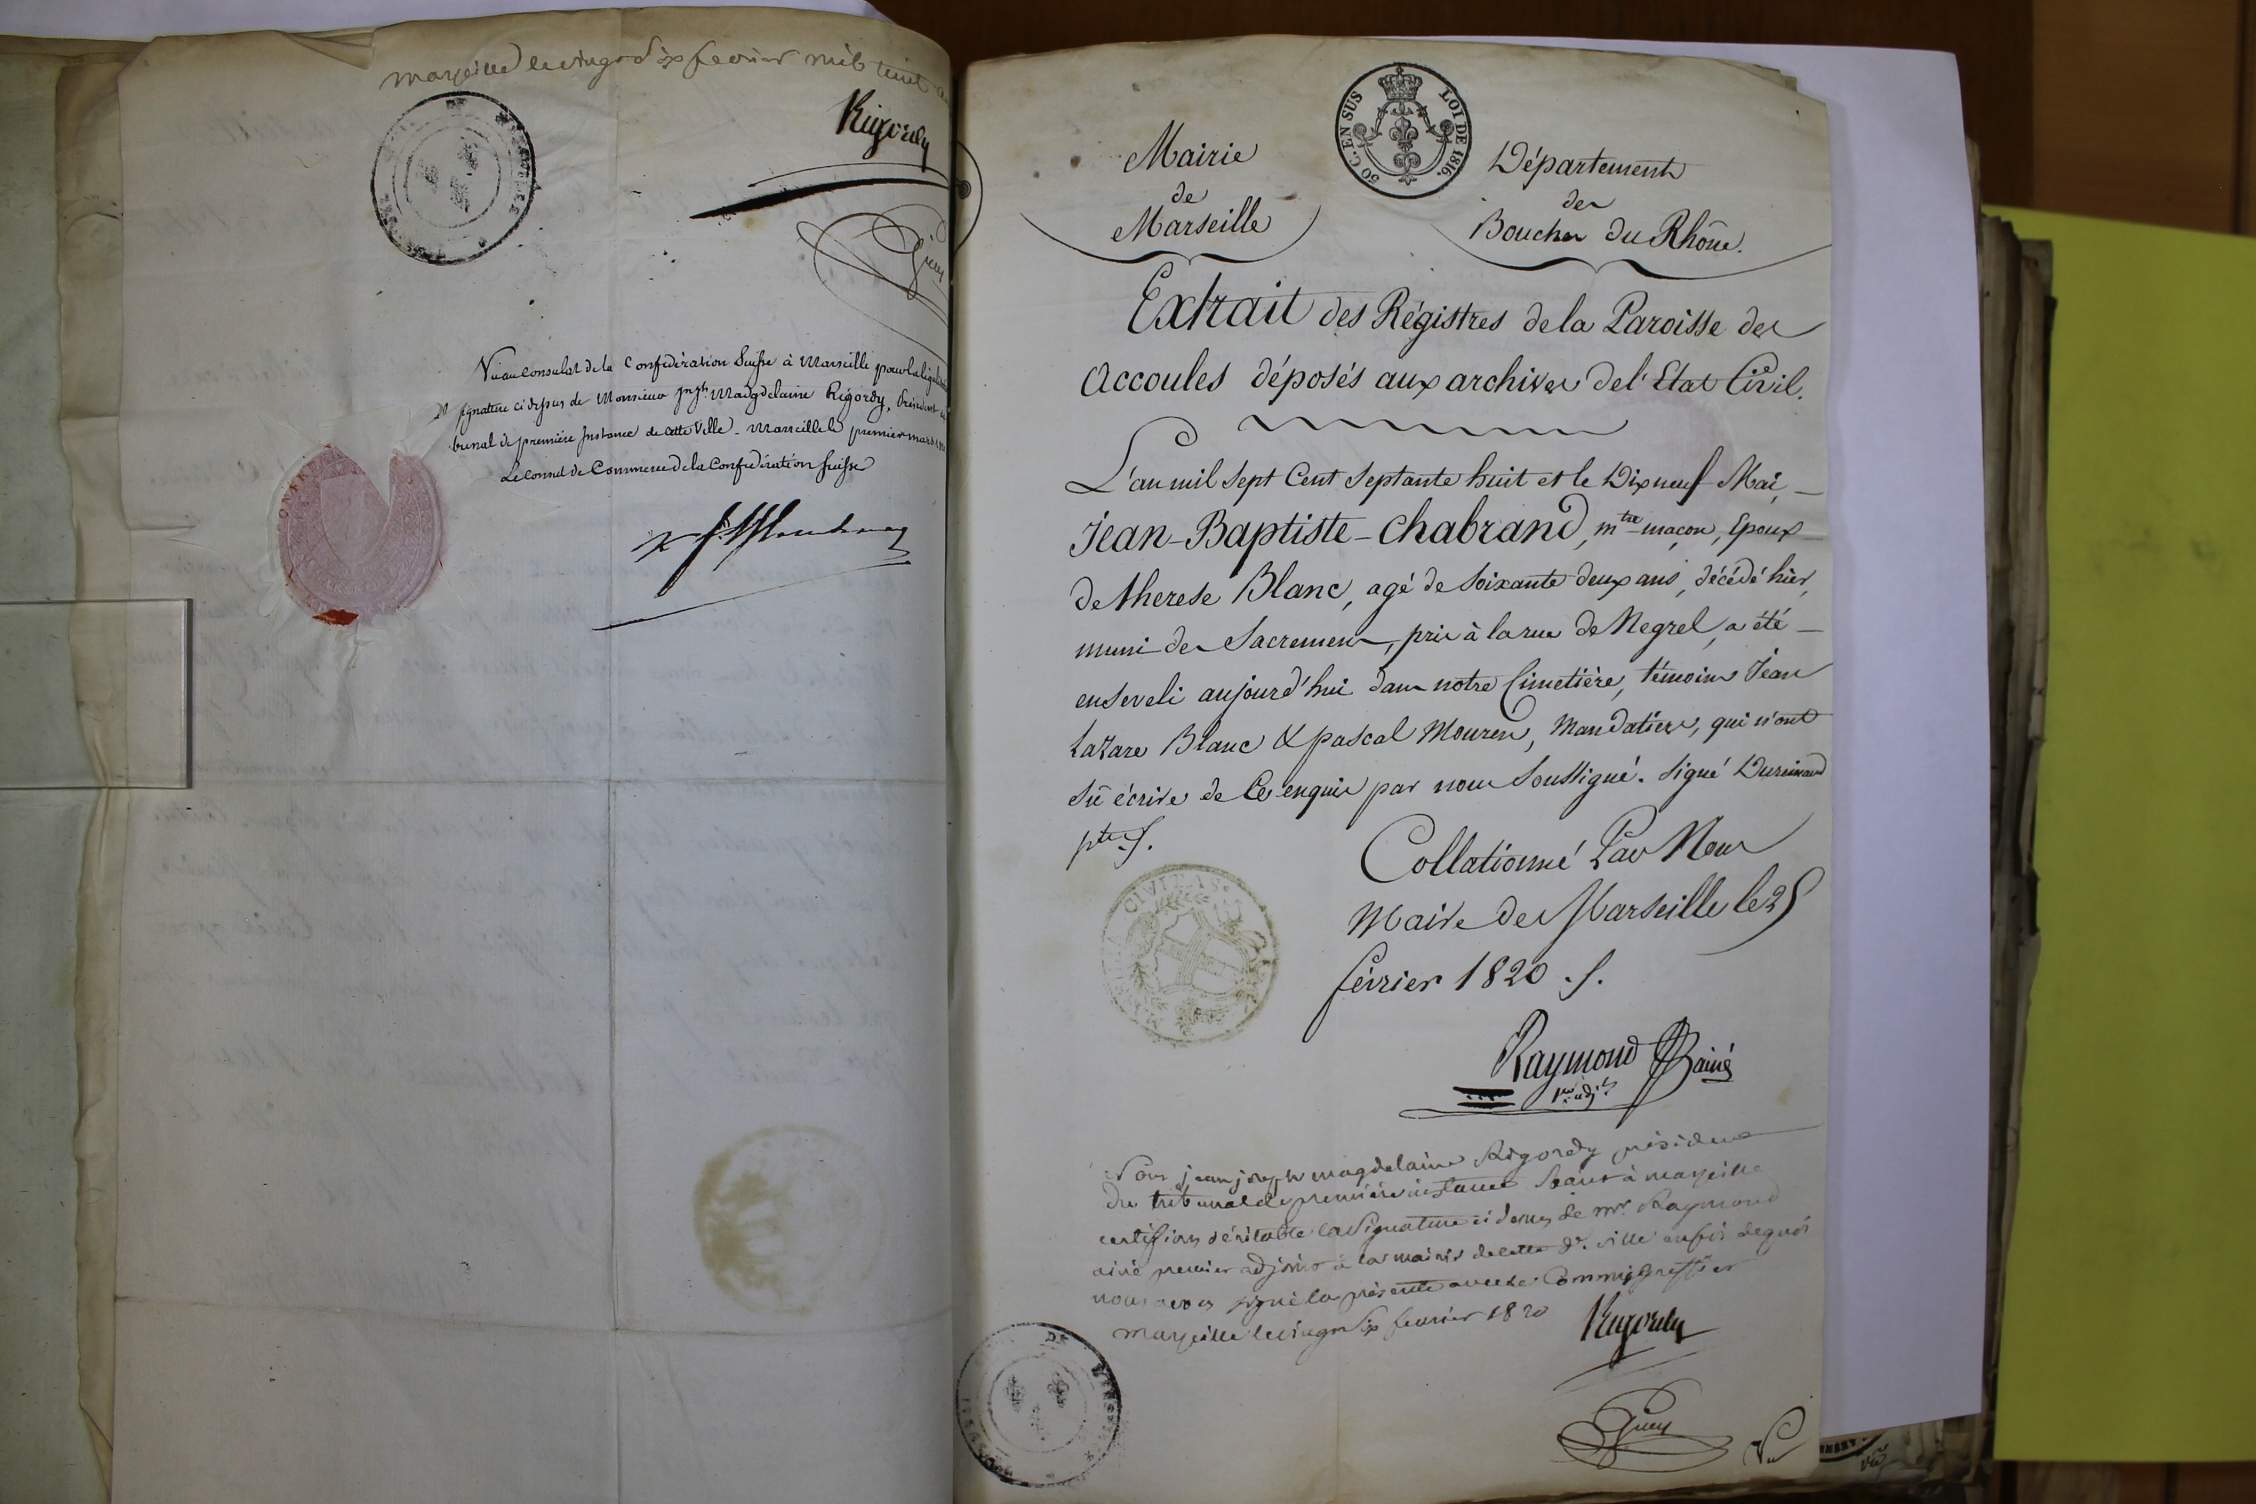 Marseille le vingt Six fevrier mil huit
Rigordy
Vu au Consulat de la Confédération Suisse à Marseille pour la
signature ci dessus de Monsieur Jnh. Magdelaine Rigordy, Président
bunal de première Instance de cette Ville. Marseille le premier mars
Le Consul de Commerce de la Confédération Suisse
Mairie
de
Marseille
50 C. EN SUS LOI DE 1816.
Département
des
Bouches du Rhône.
Extrait des Régistres de la Paroisse des
Accoules déposés aux archives de l'Etat Civil.
L'an mil sept Cent Septante huit et le Dix neuf Mai,
Jean-Baptiste-Chabrand, mtre maçon, Epoux
de therese Blanc, agé de Soixante deux ans, décédé hier,
muni des Sacremens, pris à la rue de Negrel, a été
enseveli aujourd'hui dans notre Cimetière, témoins Jean
Lazare Blanc & pascal Mouren, Mandatiers, qui n'ont
sû écrire de Ce enquis par nous Soussigné. Signé
ptre.
Collationné Par Nous
Maire de Marseille le 25
février 1820.
Raymond ainé
1er adjt
Nous jean joseph magdelaine Rigordy président
du tribunal de première instance Séant à marseille
certifions véritable la Signature ci dessus de Mr. Raymond
ainé premier adjoint à la mairie de cette de. ville en foi de quoi
nous avons signé la présente avec le Commis Greffier
Marseille le vingt Six fevrier 1820
Rigordy
Vu